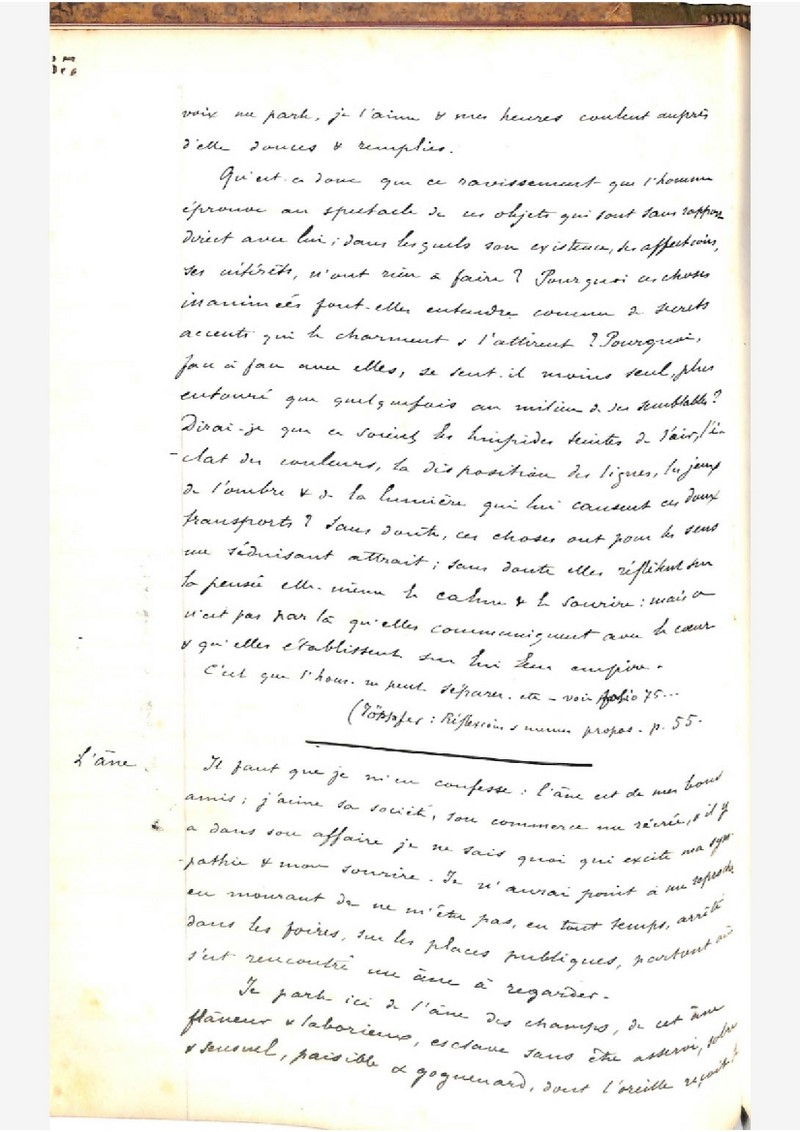 voix me parle, je l'aime & mes heures coulent auprès
d'elle douces & remplies.
Qu'est-ce donc que ce ravissement que l'homme
éprouve au spectacle de ces objets qui sont sans rapport
direct avec lui ; dans lesquels son existence, ses affections,
ses intérêts, n'ont rien à faire ? Pourquoi ces choses
inanimées font-elles entendre comme de secrets
accents qui le charment & l'attirent ? Pourquoi,
face à face avec elles, se sent-il moins seul, plus
entouré que quelquefois au milieu de ses semblables ?
Dirai-je que ce soient les limpides teintes de l'air, l'é-
-clat des couleurs, la disposition des lignes, les jeux
de l'ombre & de la lumière qui lui causent ces doux
transports ? Sans doute, ces choses ont pour les sens
un séduisant attrait ; sans doute elles reflètent sur
la pensée elle-même le calme & le sourire : mais ce
n'est pas par là qu'elles communiquent avec le cœur
& qu'elles établissent sur lui leur empire.
C'est que l'hom. ne peut séparer etc - voir folio 75...
(Töpffer : Réflexions & menus propos. p. 55.
L'âne.
Il faut que je m'en confesse : l'âne est de mes bons
amis ; j'aime sa société, son commerce me récrée, & il y
a dans son affaire je ne sais quoi qui excite ma sym-
-pathie & mon sourire. Je n'aurai point à me reprocher
en mourant de ne m'être pas, en tout temps, arrêté
dans les foires, sur les places publiques, partout où
s'est rencontré un âne à regarder.
Je parle ici de l'âne des champs, de cet âne
flâneur & laborieux, esclave sans être asservi, sobre
& sensuel, paisible & goguenard, dont l'oreille reçoit